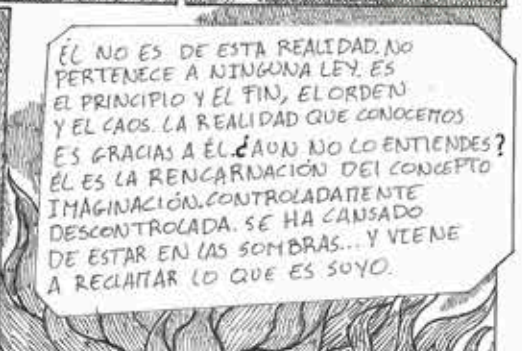 ÉL NO ES DE ESTA REALIDAD. NO
PERTENECE A NINGUNA LEY. ES
EL PRINCIPIO Y EL FIN, EL ORDEN
Y EL CAOS. LA REALIDAD QUE CONOCEMOS
ES GRACIAS A ÉL. ¿AUN NO LO ENTIENDES?
ÉL ES LA RENCARNACIÓN DEL CONCEPTO
IMAGINACIÓN. CONTROLADAMENTE
DESCONTROLADA. SE HA CANSADO
DE ESTAR EN LAS SOMBRAS... Y VIENE
A RECLAMAR LO QUE ES SUYO.